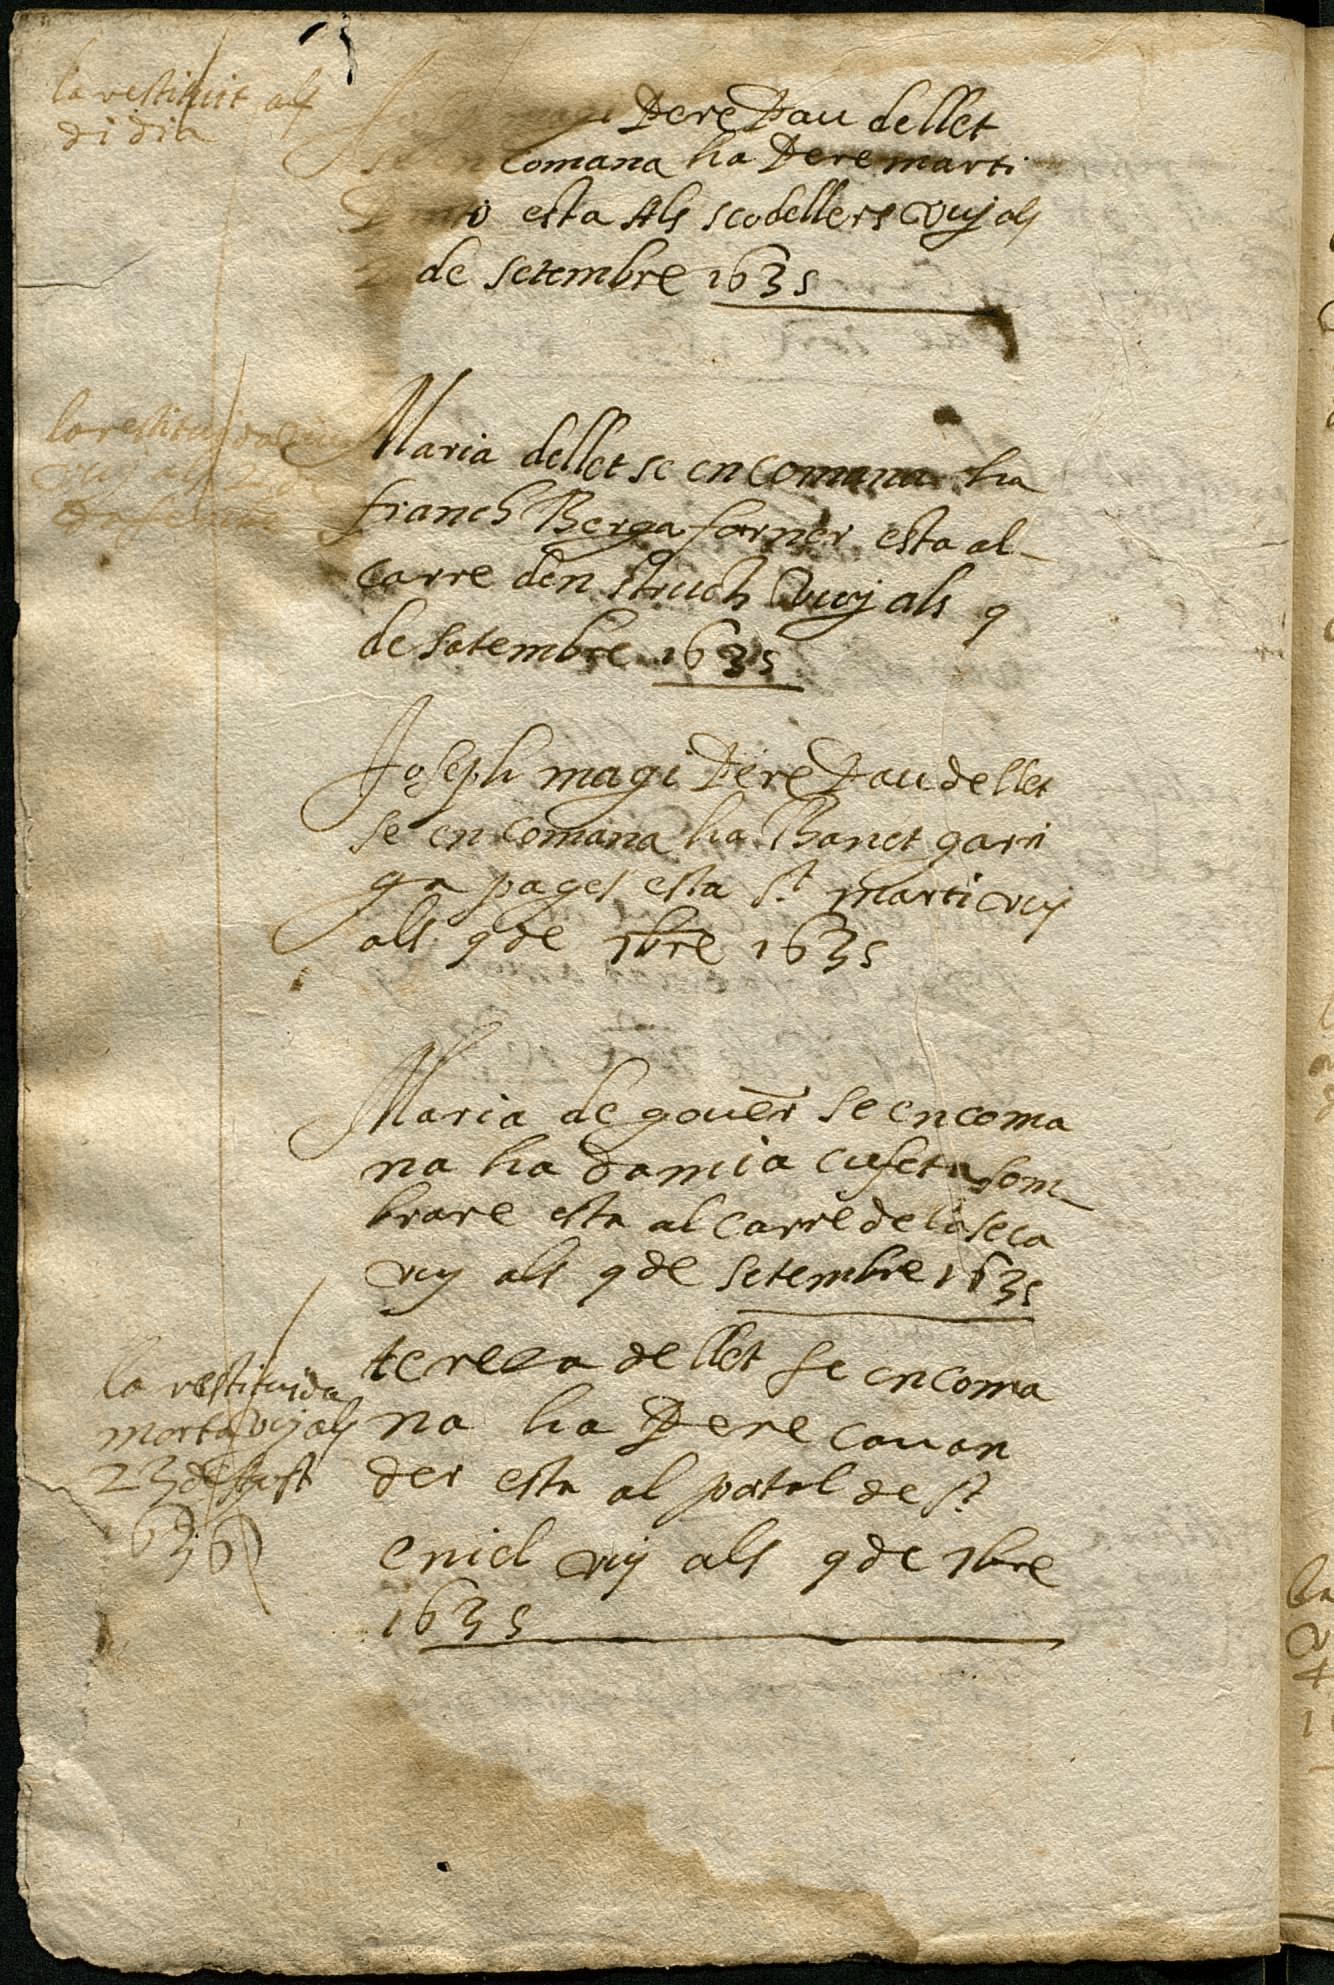 la restituit als
di dia
Pere Pau dellet
comana ha Pere marti
esta Als scodellers vuy als
de setembre 1635
la restituida
vuy als 2
Maria dellet se encomana ha
franch Berga forner esta al
carre den struch Vuy als 9
de Satembre 1635
Joseph magi Pere Pau dellet
se en comana ha Banet garri
ga pages esta st marti vuy
als 9 de 7bre 1635
Maria de gouer se encoma
na ha damia cufeta som
brare esta al carre de la seca
vuy als 9 de setembre 1635
la restituida
morta vuy als
23 de
636
tereza dellet se encoma
na ha Pere cauan
der esta al portal de st
eniel vuy als 9 de 7bre
1635